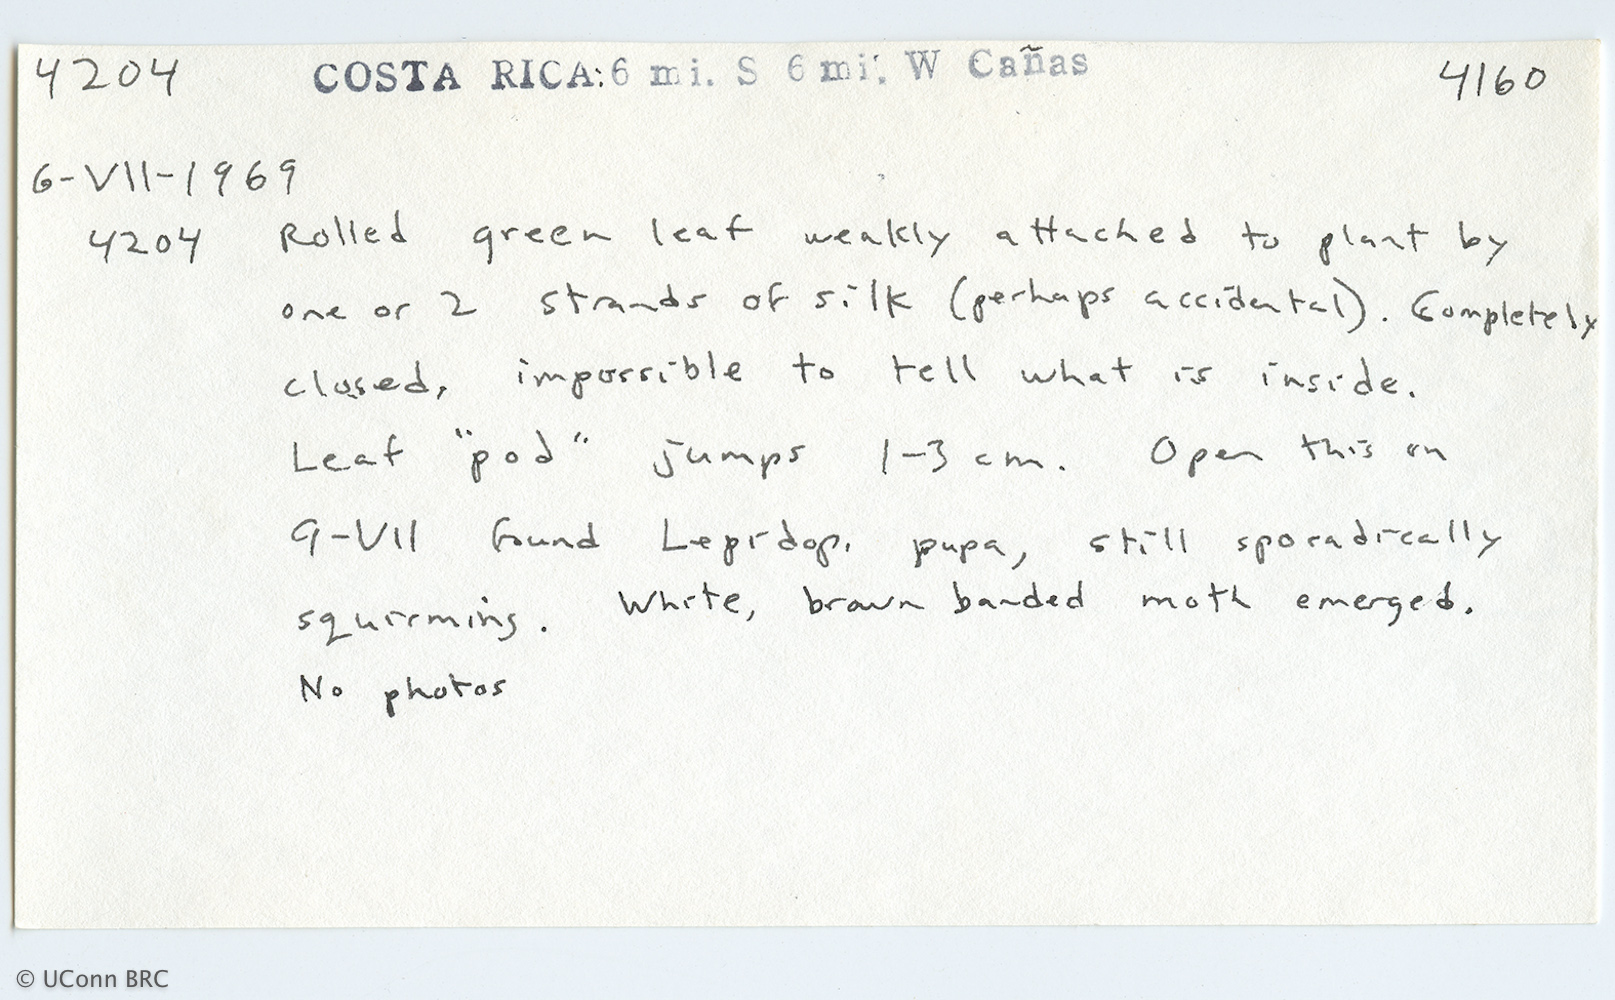 4204 COSTA RICA: 6 mi. S 6 mi. W Cañas 4160
6-VII-1969
4204 Rolled green leaf weakly attached to plant by
one or 2 strands of silk (perhaps accidental). Completely
closed, impossible to tell what is inside.
Leaf "pod" jumps 1-3 cm. Open this on
9-VII found Lepidop. pupa, still sporadically
squirming. White, brown banded moth emerged.
No photos
© UConn BRC